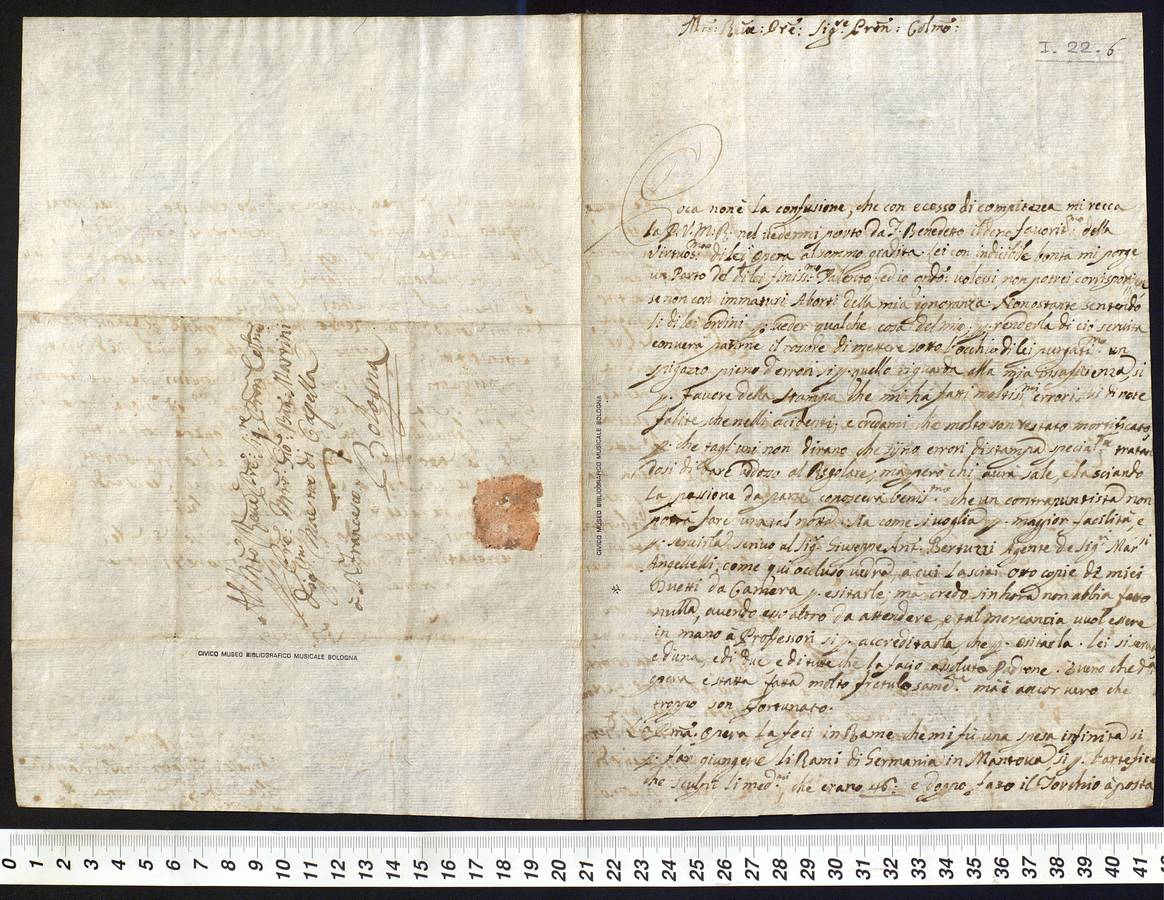 I. 22. 6
Poca non è la confusione, che con ecesso di compitezza mi recca
la P. V. M. R. nel vedermi porto da S. Benedeto
Virtuosma di lei opera al sommo gradita: lei con indicibile bontà mi porge
un Parto del di lei finissmo Talento ed io non potrei corrispondere
se non con immaturi Aborti della mia ignoranza. Nonostante sentendo
li di lei ordini p. veder qualche cosa del mio, p. renderla di ciò servita
converà patirne il rossore di mettere sotto l'occhio di lei purgatmo un
spegazzo pieno d'errori sì p. quello riguarda alla mia insufficienza, sì
p. favere della stampa che mi ha fatti moltissmi errori, sì di note
falite, che nelli acidenti; e credami che molto son restato mortificato
p. che tagl'uni non dirano che siino errori di stampa
dosi di al Regolare; ma però chi aurà sale, e lasciando
la passione da parte conoscerà benismo che un contrapuntista non
potrà fare una tal nota. Ma come si voglia p. maggior facilità, e
p. servirla scrivo al Sigr Giuseppe Ant. Bertuzzi Agente de Sigri Marsi
Angelelli, come qui occluso vedrà, a cui lasciai otto copie de miei
Duetti da Camera p. esitarle; ma credo sinhora non abbia fatto
nulla, avendo esso altro da attendere, e tal mercancia vuol essere
in mano à Professori sì p. accreditarla, che p. esitarla. Lei si serva
e d'una, e di due e di tute che la facio assoluto Padrone. È vero che
opera è stata fatta molto ma è ancor vero che
troppo son fortunato.
Opera la feci in Rame che mi fù una spesa infinita sì
p. far giungere li Rami di Germania in Mantova, sì p. l'artefice
che sculpì li medmi che erano 46: e dopo il Torchio à posta
Al Molto
Pre: Mro Gio: Batta Martini
Maestro di Capella
à S. Francesco
Bologna
CIVICO MUSEO BIBLIOGRAFICO MUSICALE BOLOGNA
CIVICO MUSEO BIBLIOGRAFICO MUSICALE BOLOGNA
0 1 2 3 4 5 6 7 8 9 10 11 12 13 14 15 16 17 18 19 20 21 22 23 24 25 26 27 28 29 30 31 32 33 34 35 36 37 38 39 40 41